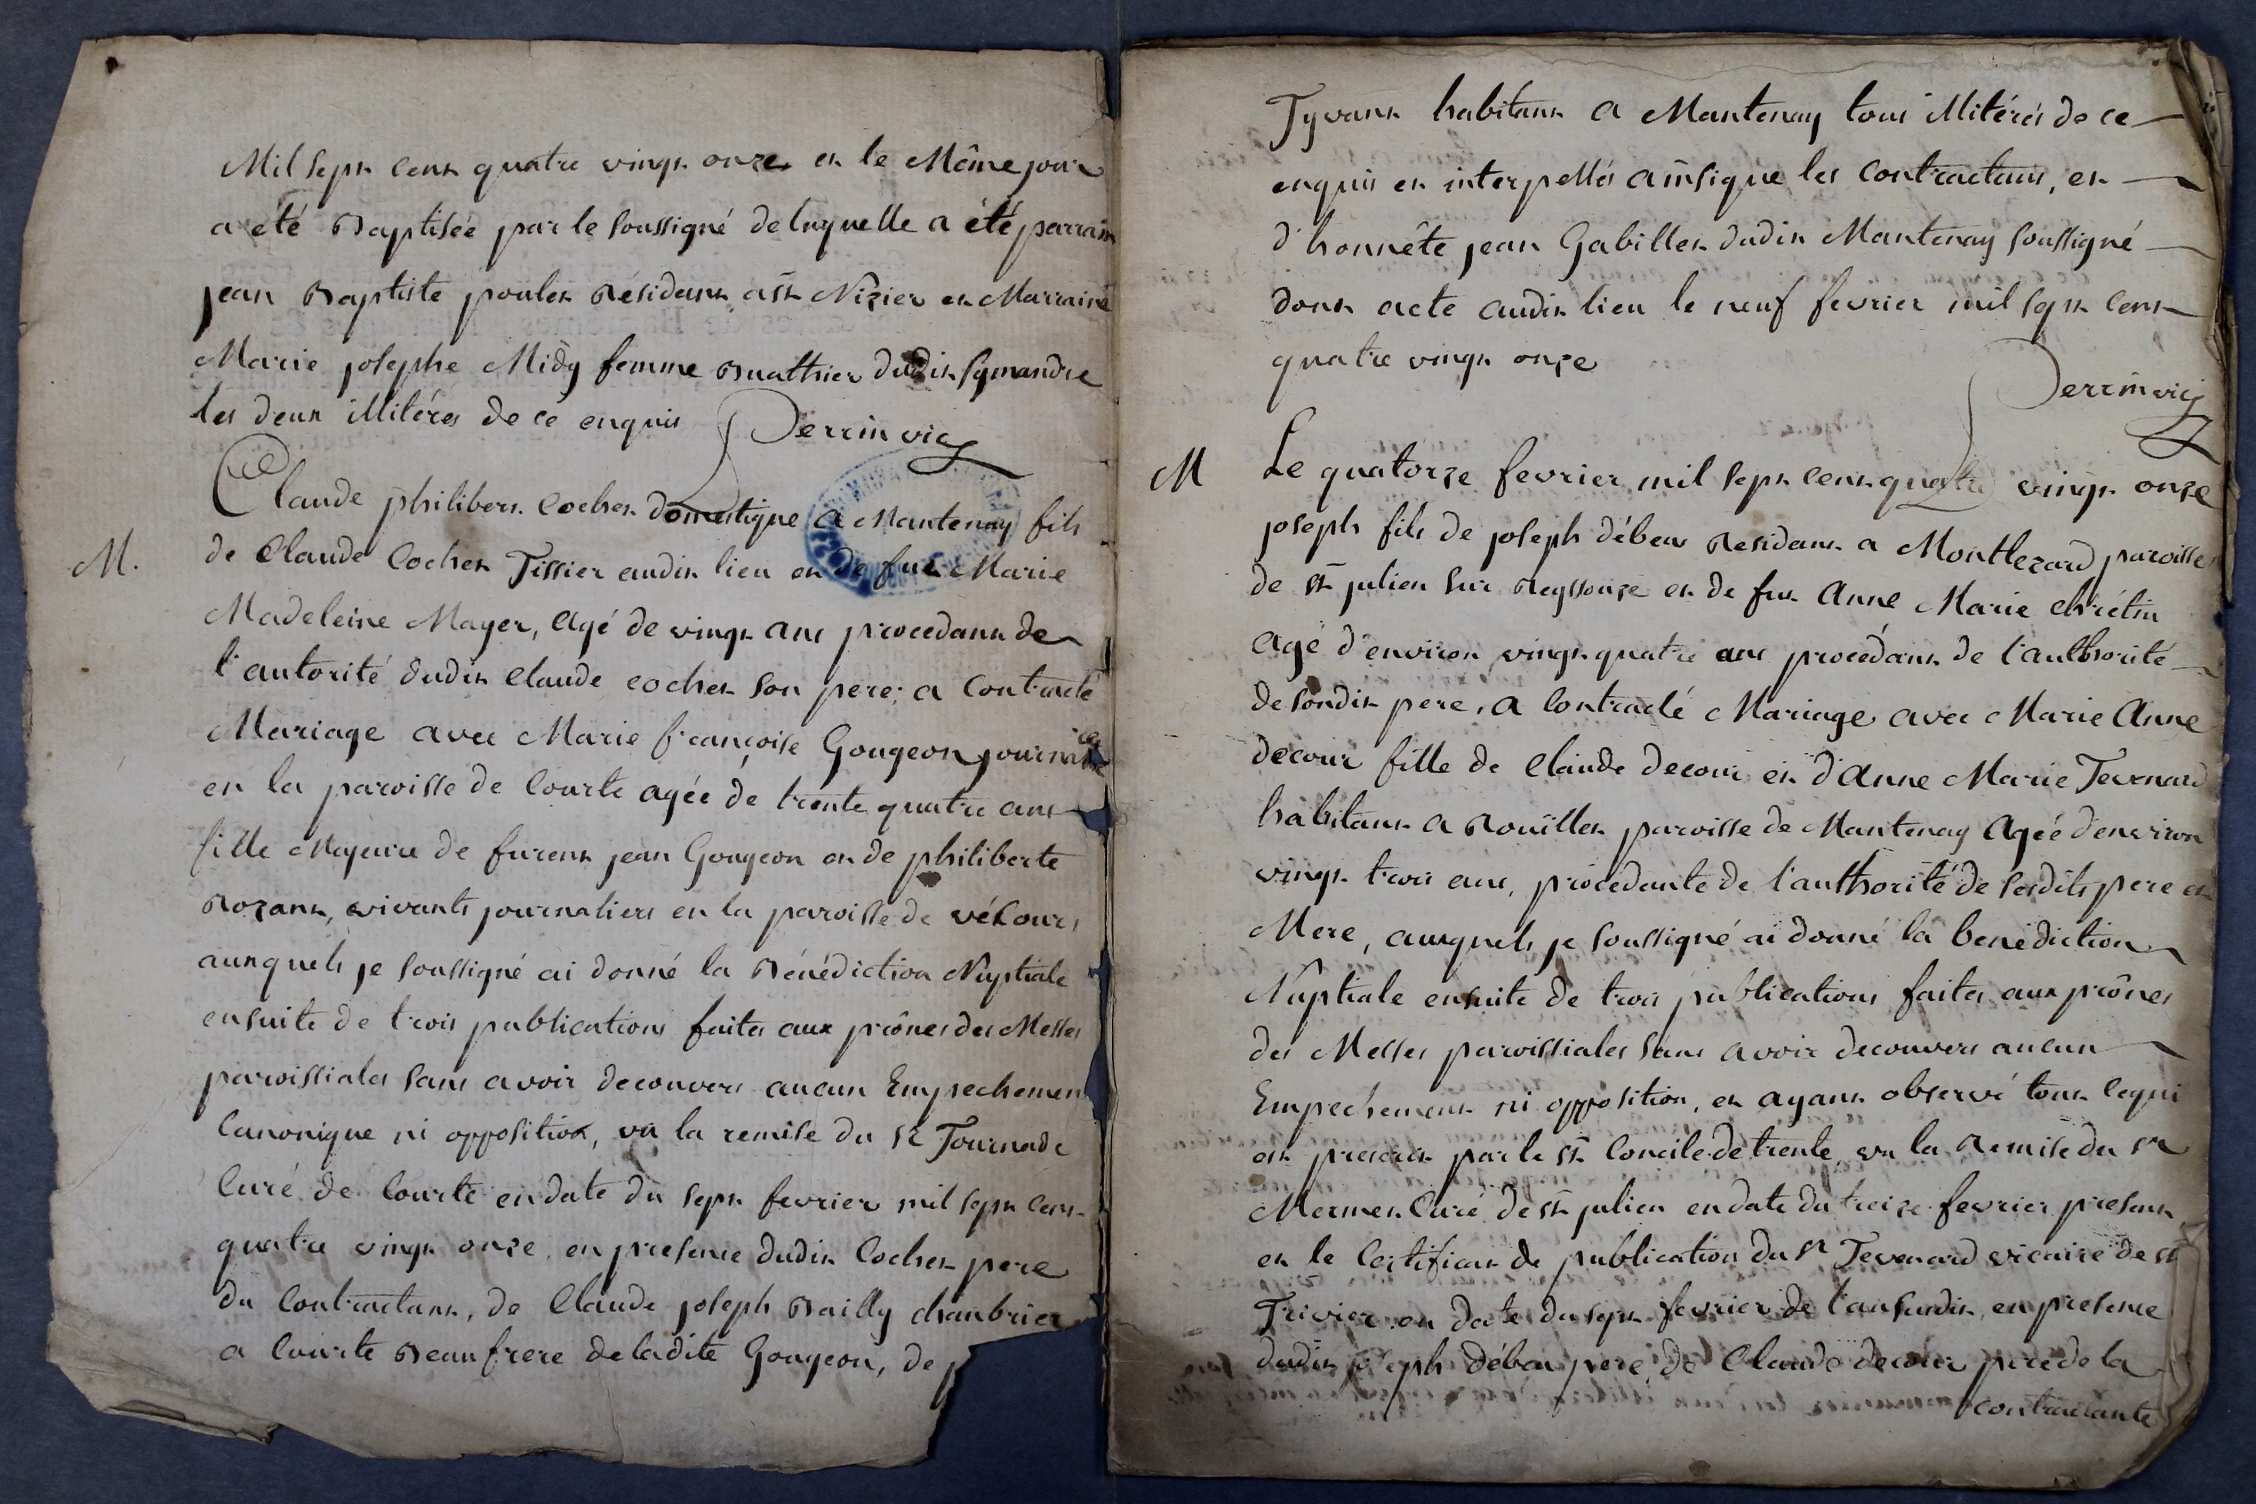 Mil sept cent quatre vingt onze et le Même jour
a été Baptisée par le soussigné de laquelle a été parrain
jean Baptiste poulet Résidant a st Nizier et Marraine
Marie josephe Midy femme Buathier dudit symandre
les deux illitéres de ce enquis Perrin vic
Claude philibert cochet domestique a Mantenay fils
M.
de Claude Cochet Tissier audit lieu et de fue Marie
Madeleine Mayer, agé de vingt ans procedant de
l'autorité dudit Claude cochet son pere; a contracté
Mariage avec Marie françoise Gougeon journaliere
en la paroisse de Courte agée de trente quatre ans
fille Majeure de furent jean Gougeon et de philiberte
Rozant, vivants journaliers en la paroisse de vécours
auxquels je soussigné ai donné la Bénédiction Nuptiale
ensuite de trois publications faites aux prônes des Messes
paroissiales sans avoir decouvert aucun Empechement
Canonique ni opposition, vu la remise du sr Tournade
Curé de Courte en date du sept fevrier mil sept cent
quatre vingt onze. en presence dudit Cochet pere
du Contractant, de Claude joseph Bailly chambrier
a Courte Beaufrere de ladite Gougeon, de
Tyvant habitant a Mantenay tous illitérés de ce
enquis et interpellés ainsique les contractans, et
d'honnête jean Gabillet dudit Mantenay soussigné
dont acte audit lieu le neuf fevrier mil sept cent
quatre vingt onze
Perrin vic
M
Le quatorze fevrier mil sept cent quatre vingt onze
joseph fils de joseph débeau Residant a Montlezard paroisse
de st julien sur Reyssouze et de fue Anne Marie chrétin
agé d'environ vingt quatre ans procédant de l'authorité
de sondit pere, a Contracté Mariage avec Marie Anne
decour fille de Claude decour et d'Anne Marie Tevenard
habitant a Rouillet paroisse de Mantenay Agée d'environ
vingt trois ans, procedante de l'authorité de sesdits pere et
Mere, auxquels je soussigné ai donné la benediction
Nuptiale ensuite de trois publications faites aux prônes
des Messes paroissiales sans avoir decouvert aucun
Empechement ni opposition, et ayant observé tout cequi
est prescrit par le st Concile de trente, vu la Remise du sr
Mermet Curé de st julien en date du treize fevrier present
et le Certificat de publication du sr Tevenard vicaire de st
Trivier en date du sept fevrier de l'an susdit, en presence
dudit joseph débeau pere, de Claude decour pere de la
contractante